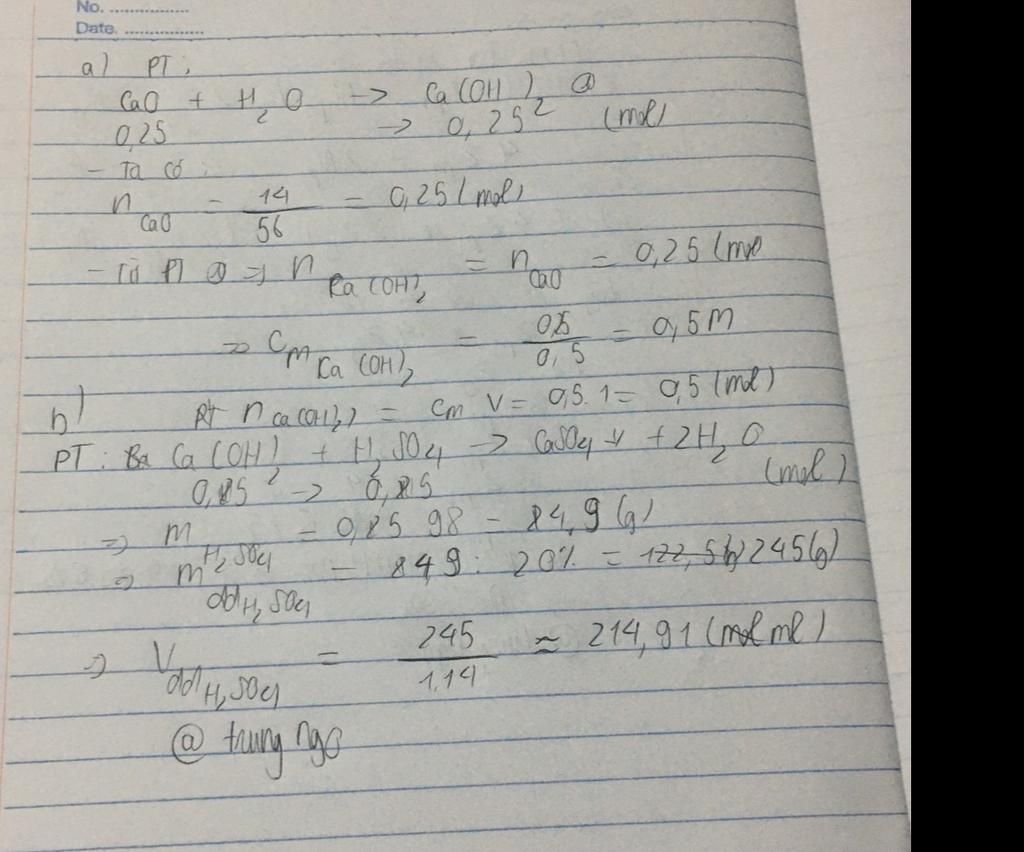 No. ..................
Date. ..................
a) PT:
CaO + H₂O → Ca(OH)₂ @
0,25 → 0,25 (mol)
- Ta có:
n CaO = 14/56 = 0,25 (mol)
- Từ PT @ => n Ca(OH)₂ = n CaO = 0,25 (mol
=> CM Ca(OH)₂ = 0,5 = 0,5M
b) n Ca(OH)₂) = Cm V = 0,5.1 = 0,5 (mol)
PT: Ca(OH)₂ + H₂SO₄ → CaSO₄↓ + 2H₂O
(mol)
=> m H₂SO₄ = 98 = 9 (g)
=> m ddH₂SO₄ = 49 : 20% = 122,5g) 245(g)
=> V ddH₂SO₄ = 245/1,14 ≈ 214,91 (mol ml)
@ trung ngo